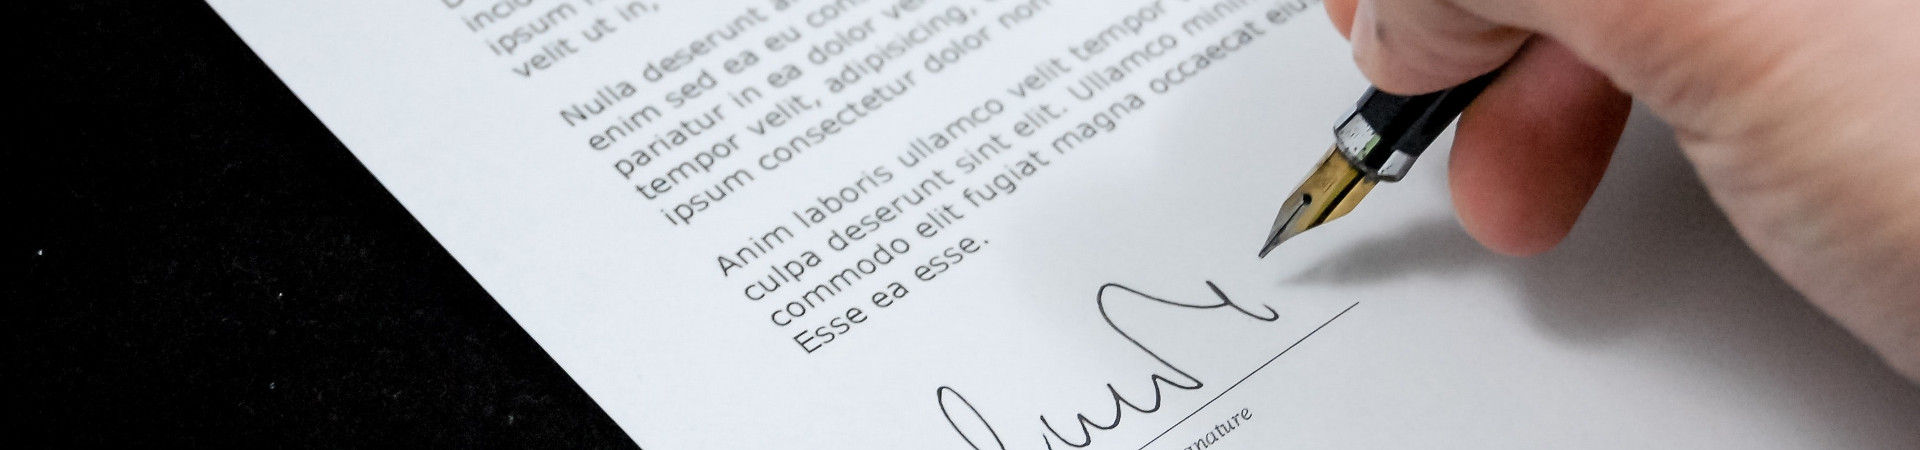 ipsum
velit ut in,
Nulla deserunt
enim sed ea eu
pariatur in ea dolor
tempor velit, adipisicing,
ipsum consectetur dolor non
Anim laboris ullamco velit tempor
culpa deserunt sint elit. Ullamco
commodo elit fugiat magna occaecat
Esse ea esse.